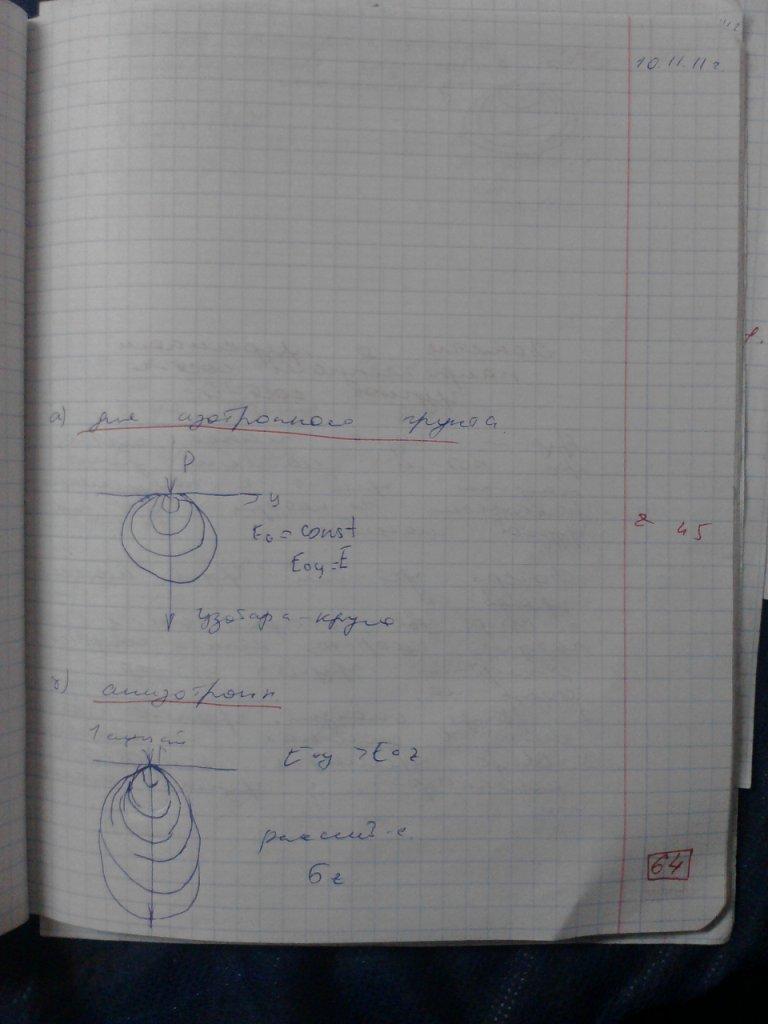 10.11.11г
а) для изотропного грунта
P
y
E₀ = const
E₀y = E
Изобара - круги
z 45
б) анизотропн
1 случай
E₀y > E₀z
σz
64